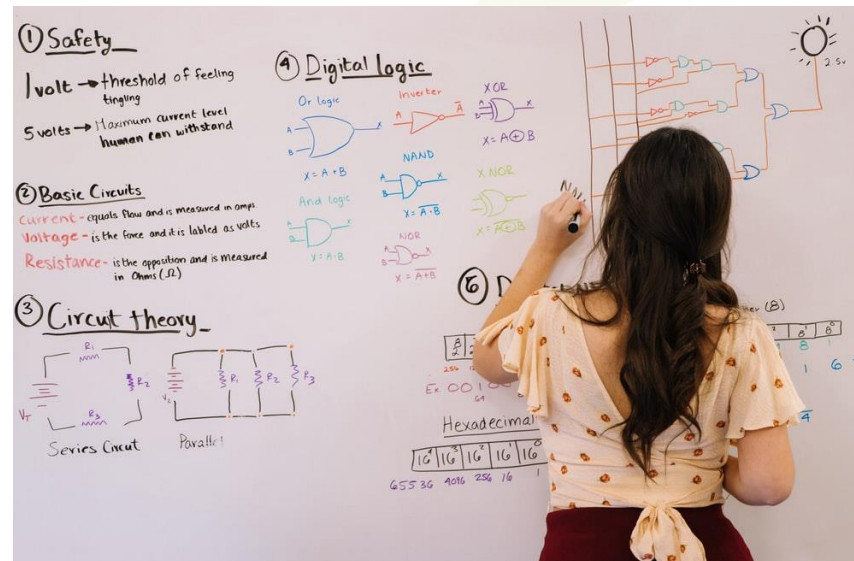 ① Safety
1 volt → threshold of feeling
tingling
5 volts → Maximum current level
human can withstand
② Basic Circuits
Current - equals flow and is measured in amps.
Voltage - is the force and it is labled as volts
Resistance - is the opposition and is measured
in Ohms (Ω)
③ Circut theory
R₁
R₂
R₃
V_T
Series Circut
R₁
R₂
R₃
Parallel
④ Digital logic
Or logic
A
B
X
X = A + B
Inverter
A
A̅
XOR
A
B
X
X = A ⊕ B
And logic
A
B
X
X = A · B
NAND
A
B
X
X = \overline{A · B}
NOR
A
B
X
X = \overline{A + B}
X NOR
X = \overline{A ⊕ B}
2.5v
⑤ D
(8)
256
8¹ 8⁰
8 1
1 6
4
Ex. 001
64
Hexadecimal
16⁴ 16³ 16² 16¹ 16⁰
65536 4096 256 16 1